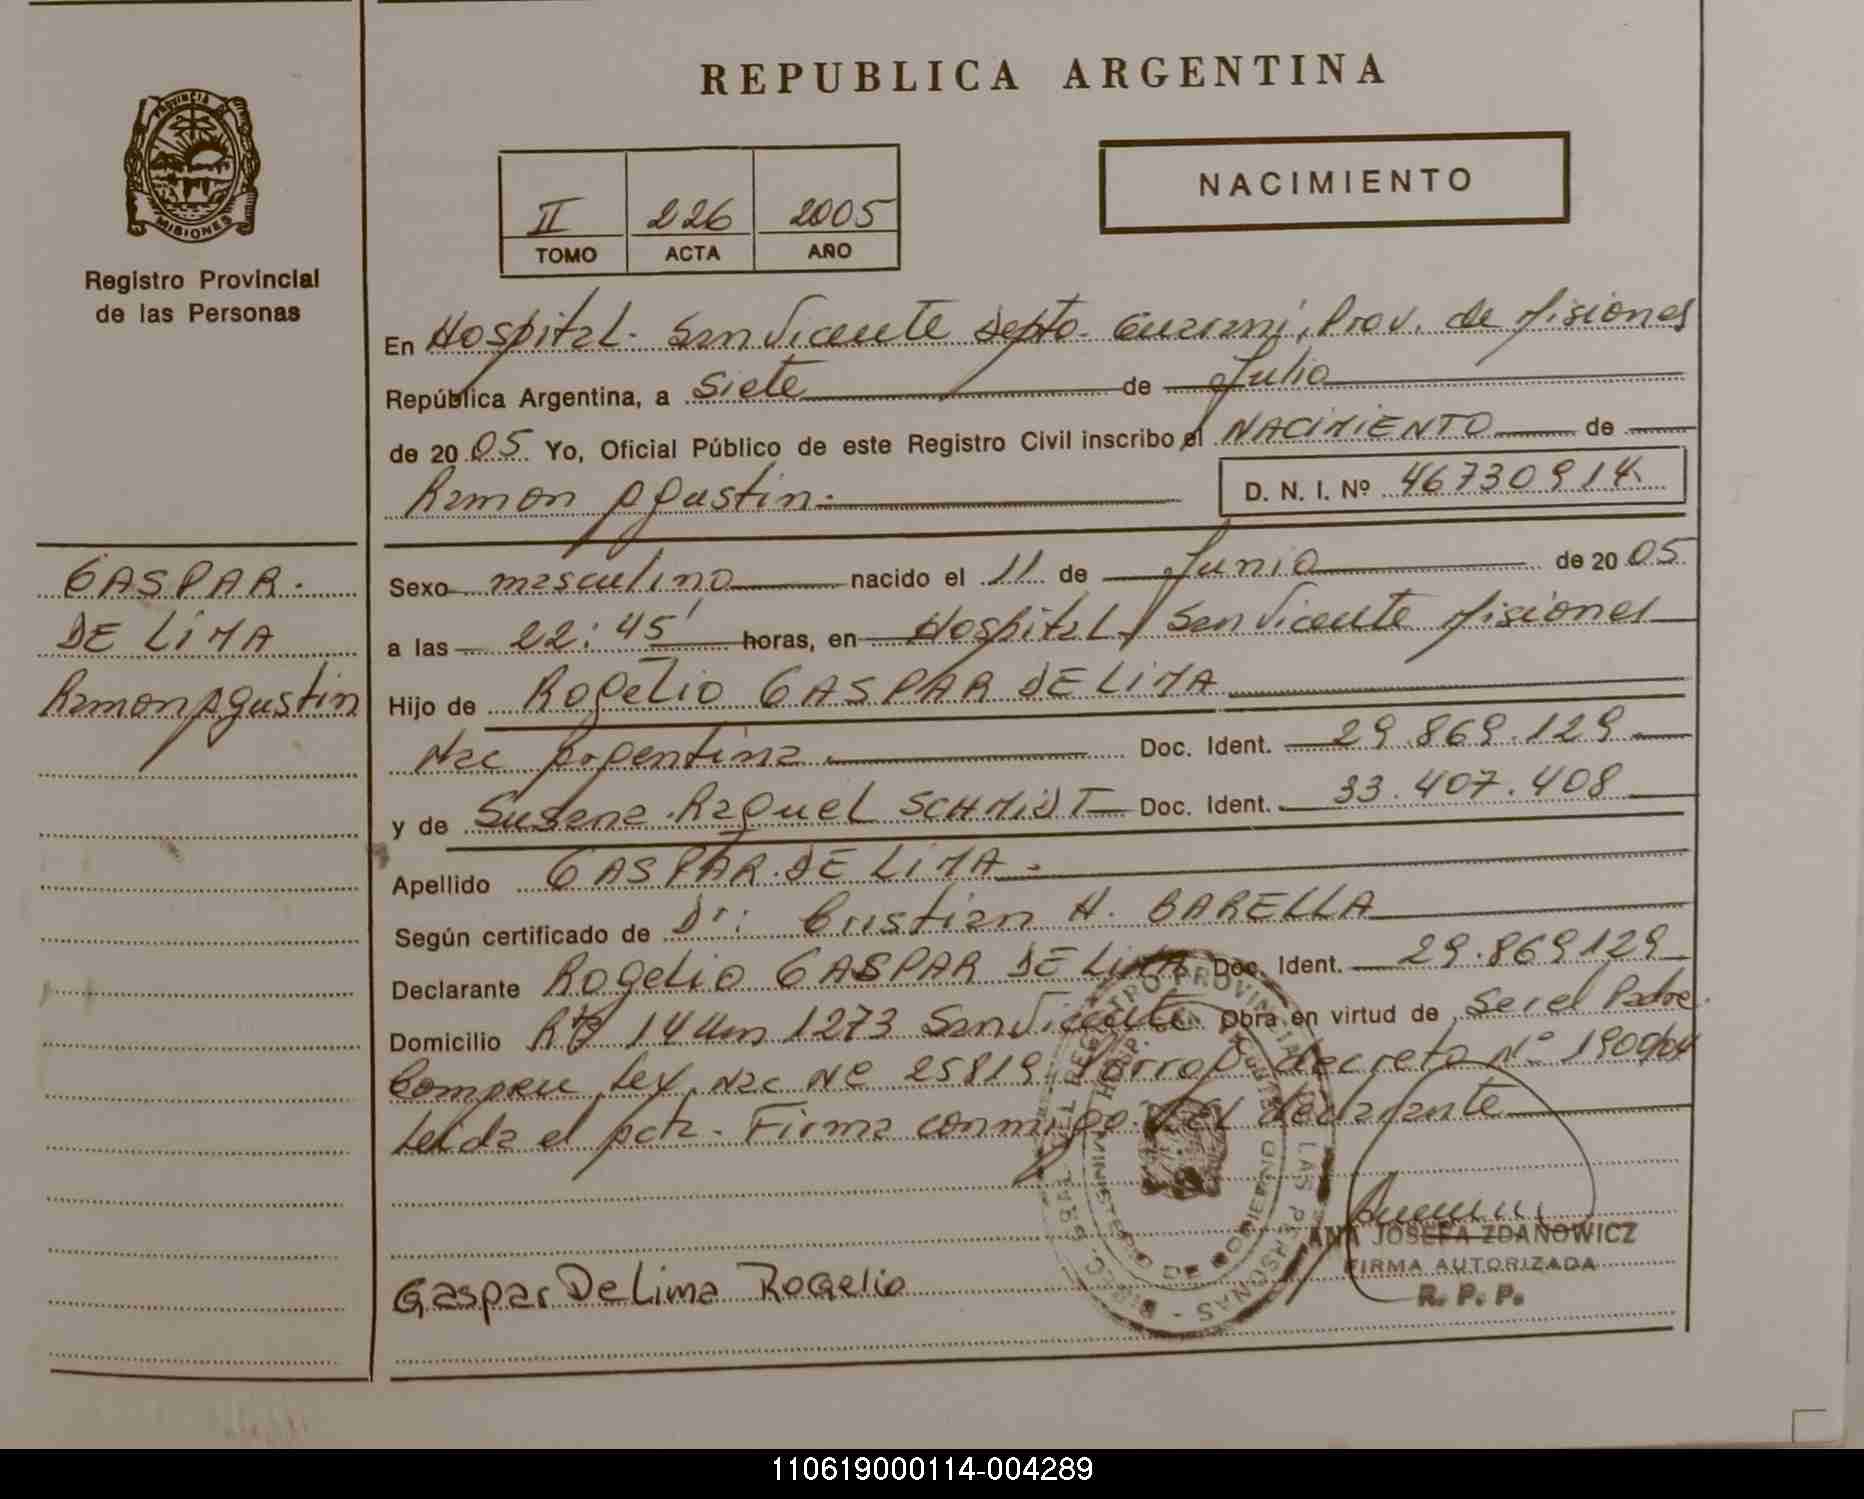 REPUBLICA ARGENTINA
PROVINCIA DE MISIONES
Registro Provincial
de las Personas
NACIMIENTO
II 226 2005
TOMO ACTA AÑO
En Hospital. San Vicente Depto. Guarani, Prov. de Misiones
República Argentina, a siete de Julio
de 2005 Yo, Oficial Público de este Registro Civil inscribo el NACIMIENTO de
Ramon Agustin.
D. N. I. Nº 46730914
GASPAR.
DE LiMA
Ramon Agustin
Sexo masculino nacido el 11 de Junio de 2005
a las 22:45' horas, en Hospital San Vicente Misiones
Hijo de Rogelio GASPAR DE LiMA
Nac Argentina Doc. Ident. 29.869.129
y de Susana Raquel SCHMiDT Doc. Ident. 33.407.408
Apellido GASPAR DE LiMA
Según certificado de Dr: Cristian H. BARELLA
Declarante Rogelio GASPAR DE LiMA Doc. Ident. 29.869129
Domicilio Rta 14 Km 1273 San Vicente Obra en virtud de Ser el Padre.
Ley Nac Nº 25819 decreto Nº 1900/04
Leida el acta. Firma conmigo el declarante
Gaspar De Lima Rogelio
DIREC. GRAL. DEL REGISTRO PROVINCIAL DE LAS PERSONAS
MINISTERIO DE GOBIERNO
ANA JOSEFA ZDANOWICZ
FIRMA AUTORIZADA
R. P. P.
110619000114-004289